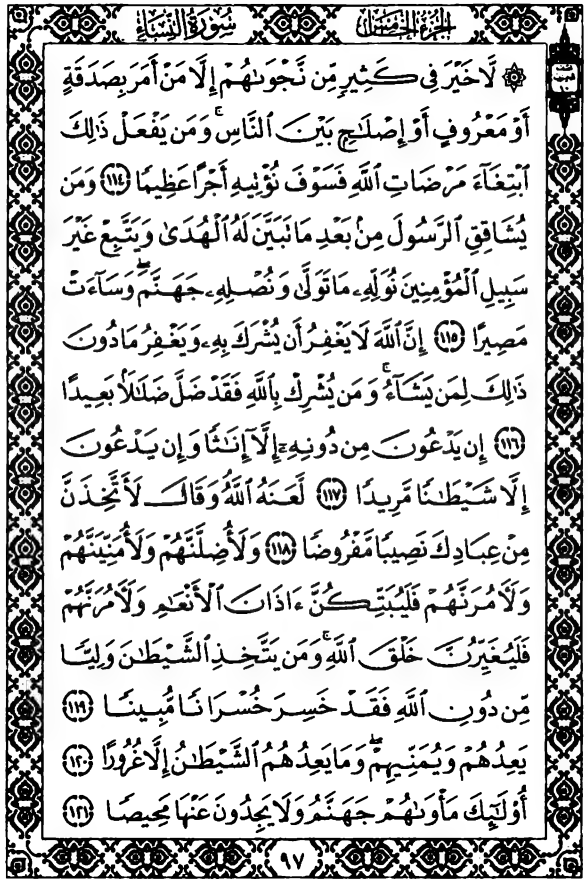 سُورَةُ النِّسَاءِ
الجُزْءُ الخَامِسُ
۞ لَّا خَيْرَ فِى كَثِيرٍ مِّن نَّجْوَىٰهُمْ إِلَّا مَنْ أَمَرَ بِصَدَقَةٍ
أَوْ مَعْرُوفٍ أَوْ إِصْلَٰحٍۭ بَيْنَ ٱلنَّاسِ ۚ وَمَن يَفْعَلْ ذَٰلِكَ
ٱبْتِغَآءَ مَرْضَاتِ ٱللَّهِ فَسَوْفَ نُؤْتِيهِ أَجْرًا عَظِيمًا ﴿١١٤﴾ وَمَن
يُشَاقِقِ ٱلرَّسُولَ مِنۢ بَعْدِ مَا تَبَيَّنَ لَهُ ٱلْهُدَىٰ وَيَتَّبِعْ غَيْرَ
سَبِيلِ ٱلْمُؤْمِنِينَ نُوَلِّهِۦ مَا تَوَلَّىٰ وَنُصْلِهِۦ جَهَنَّمَ ۖ وَسَآءَتْ
مَصِيرًا ﴿١١٥﴾ إِنَّ ٱللَّهَ لَا يَغْفِرُ أَن يُشْرَكَ بِهِۦ وَيَغْفِرُ مَا دُونَ
ذَٰلِكَ لِمَن يَشَآءُ ۚ وَمَن يُشْرِكْ بِٱللَّهِ فَقَدْ ضَلَّ ضَلَٰلًۢا بَعِيدًا
﴿١١٦﴾ إِن يَدْعُونَ مِن دُونِهِۦٓ إِلَّآ إِنَٰثًا وَإِن يَدْعُونَ
إِلَّا شَيْطَٰنًا مَّرِيدًا ﴿١١٧﴾ لَّعَنَهُ ٱللَّهُ ۘ وَقَالَ لَأَتَّخِذَنَّ
مِنْ عِبَادِكَ نَصِيبًا مَّفْرُوضًا ﴿١١٨﴾ وَلَأُضِلَّنَّهُمْ وَلَأُمَنِّيَنَّهُمْ
وَلَءَامُرَنَّهُمْ فَلَيُبَتِّكُنَّ ءَاذَانَ ٱلْأَنْعَٰمِ وَلَءَامُرَنَّهُمْ
فَلَيُغَيِّرُنَّ خَلْقَ ٱللَّهِ ۚ وَمَن يَتَّخِذِ ٱلشَّيْطَٰنَ وَلِيًّا
مِّن دُونِ ٱللَّهِ فَقَدْ خَسِرَ خُسْرَانًا مُّبِينًا ﴿١١٩﴾
يَعِدُهُمْ وَيُمَنِّيهِمْ ۖ وَمَا يَعِدُهُمُ ٱلشَّيْطَٰنُ إِلَّا غُرُورًا ﴿١٢٠﴾
أُو۟لَٰٓئِكَ مَأْوَىٰهُمْ جَهَنَّمُ وَلَا يَجِدُونَ عَنْهَا مَحِيصًا ﴿١٢١﴾
٩٧